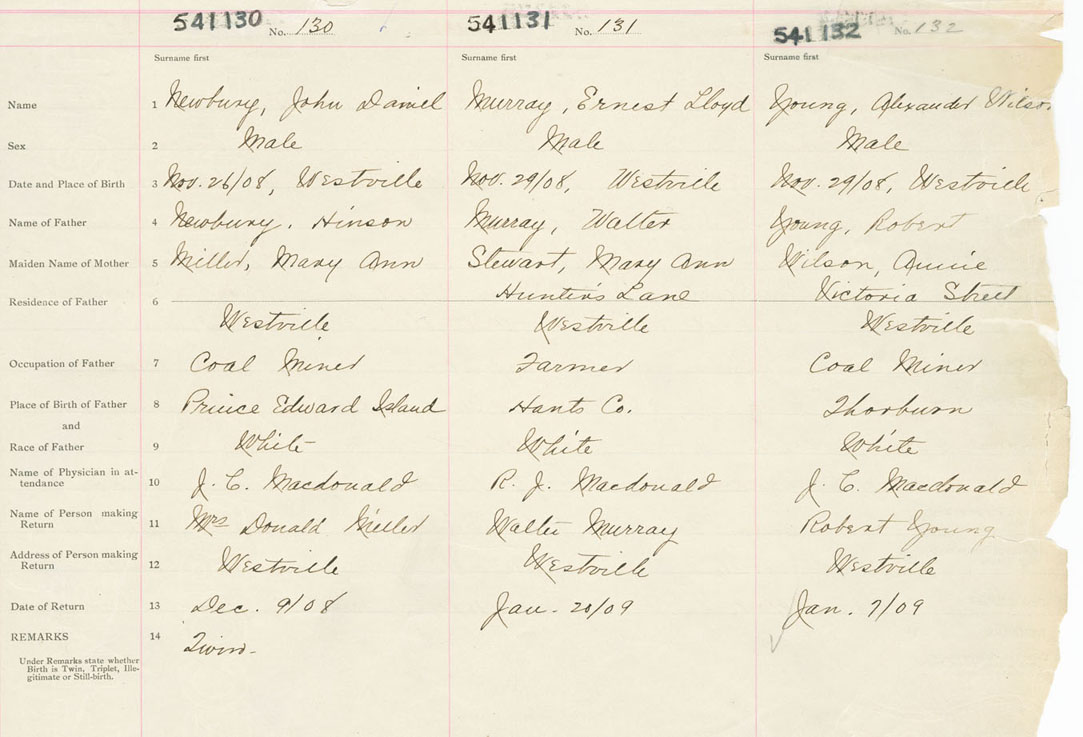 541130 No. 130 541131 No. 131 541132 No. 132
Surname first Surname first Surname first
Name 1 Newbury, John Daniel Murray, Ernest Lloyd Young, Alexander Wilson
Sex 2 Male Male Male
Date and Place of Birth 3 Nov. 26/08, Westville Nov. 29/08, Westville Nov. 29/08, Westville
Name of Father 4 Newbury, Hinson Murray, Walter Young, Robert
Maiden Name of Mother 5 Miller, Mary Ann Stewart, Mary Ann Wilson, Annie
Hunter's Lane Victoria Street
Residence of Father 6
Westville Westville Westville
Occupation of Father 7 Coal Miner Farmer Coal Miner
Place of Birth of Father 8 Prince Edward Island Hants Co. Thorburn
and
Race of Father 9 White White White
Name of Physician in at-
tendance 10 J. C. Macdonald R. J. Macdonald J. C. Macdonald
Name of Person making
Return 11 Mrs Donald Miller Walter Murray Robert Young
Address of Person making
Return 12 Westville Westville Westville
Date of Return 13 Dec. 9/08 Jan. 20/09 Jan. 7/09
REMARKS 14 Twin.
Under Remarks state whether
Birth is Twin, Triplet, Ille-
gitimate or Still-birth.